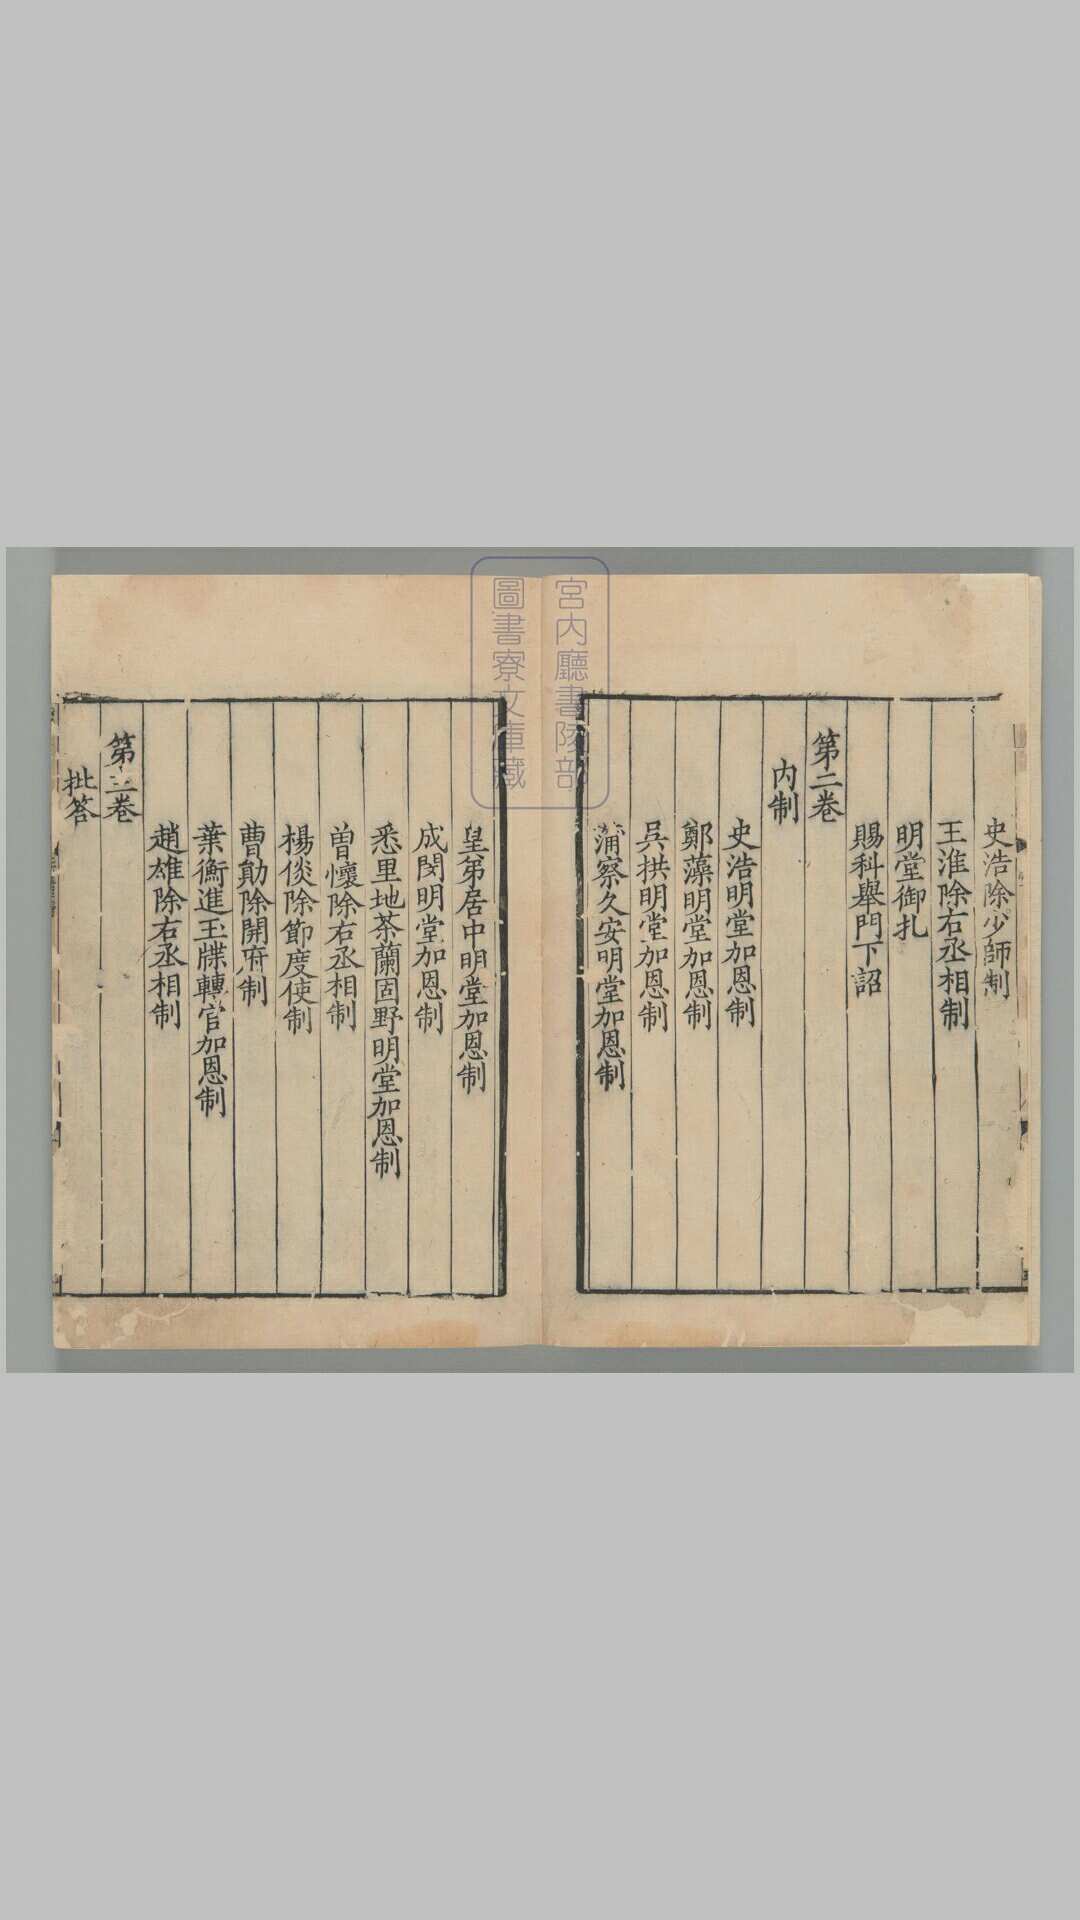 史浩除少師制
王淮除右丞相制
明堂御札
賜科舉門下詔
第二卷
内制
史浩明堂加恩制
鄭藻明堂加恩制
吳拱明堂加恩制
蒲察久安明堂加恩制
皇弟居中明堂加恩制
成閔明堂加恩制
悉里地茶蘭固野明堂加恩制
曾懷除右丞相制
楊倓除節度使制
曹勛除開府制
葉衡進玉牒轉官加恩制
趙雄除右丞相制
第三卷
批答
宮内廳書陵部
圖書寮文庫藏